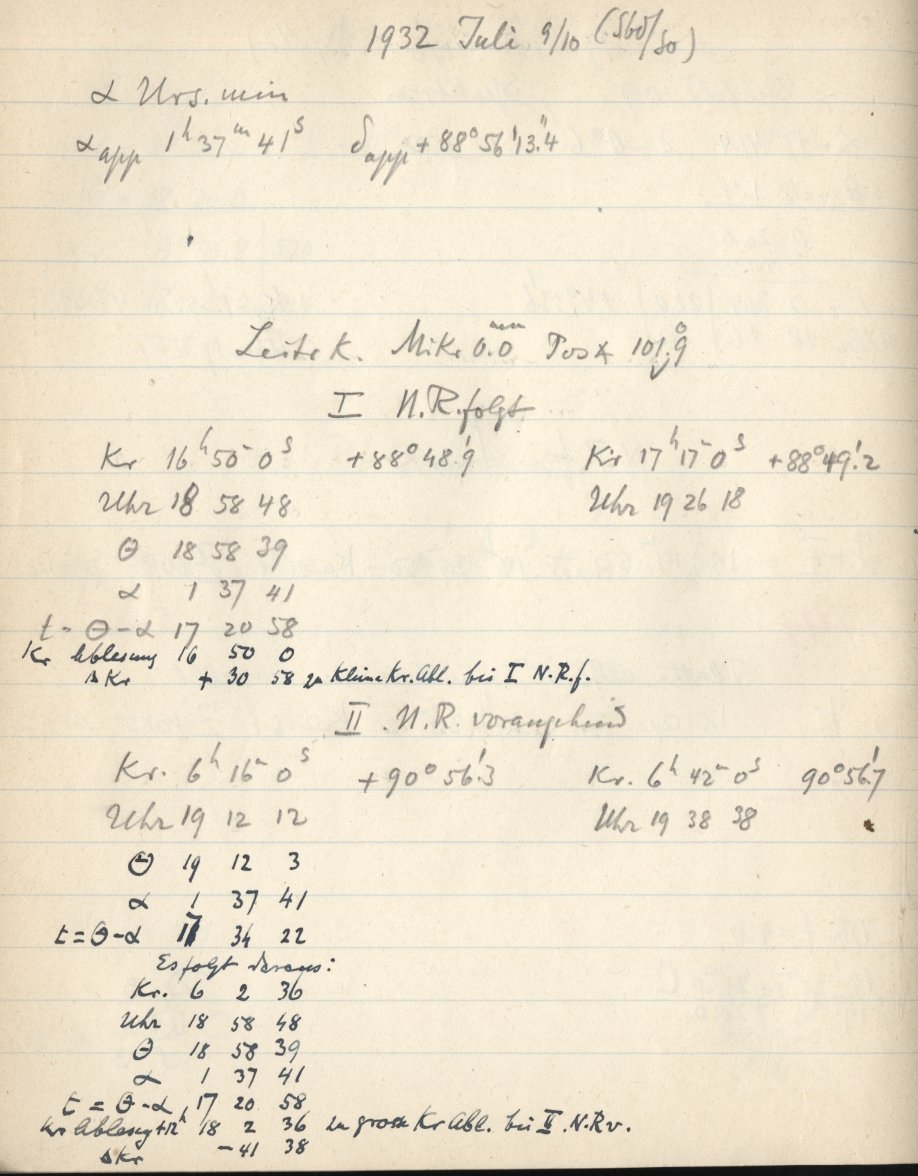 1932 Juli 9/10 (Sbd/So)
α Urs. min
α app 1ʰ 37ᵐ 41ˢ δ app + 88° 56' 13."4
Leitrk. Mikr 0.0 Pos∡ 101.°9
I N.R. folgt
Kr 16ʰ 50ᵐ 0ˢ +88° 48.'9 Kr 17ʰ 17ᵐ 0ˢ +88° 49.'2
Uhr 18 58 48 Uhr 19 26 18
Θ 18 58 39
α 1 37 41
t = Θ - α 17 20 58
Kr Ablesung 16 50 0
Δ Kr + 30 58 zu kleine Kr. Abl. bei I N.R.f.
II N.R. vorangehend
Kr. 6ʰ 16ᵐ 0ˢ +90° 56.'3 Kr. 6ʰ 42ᵐ 0ˢ 90° 56.'7
Uhr 19 12 12 Uhr 19 38 38
Θ 19 12 3
α 1 37 41
t = Θ - α 17 34 22
Es folgt daraus:
Kr. 6 2 36
Uhr 18 58 48
Θ 18 58 39
α 1 37 41
t = Θ - α 17 20 58
Kr Ablesung + 12ʰ 18 2 36 zu grosse Kr Abl. bei II. N.R v.
Δ Kr - 41 38